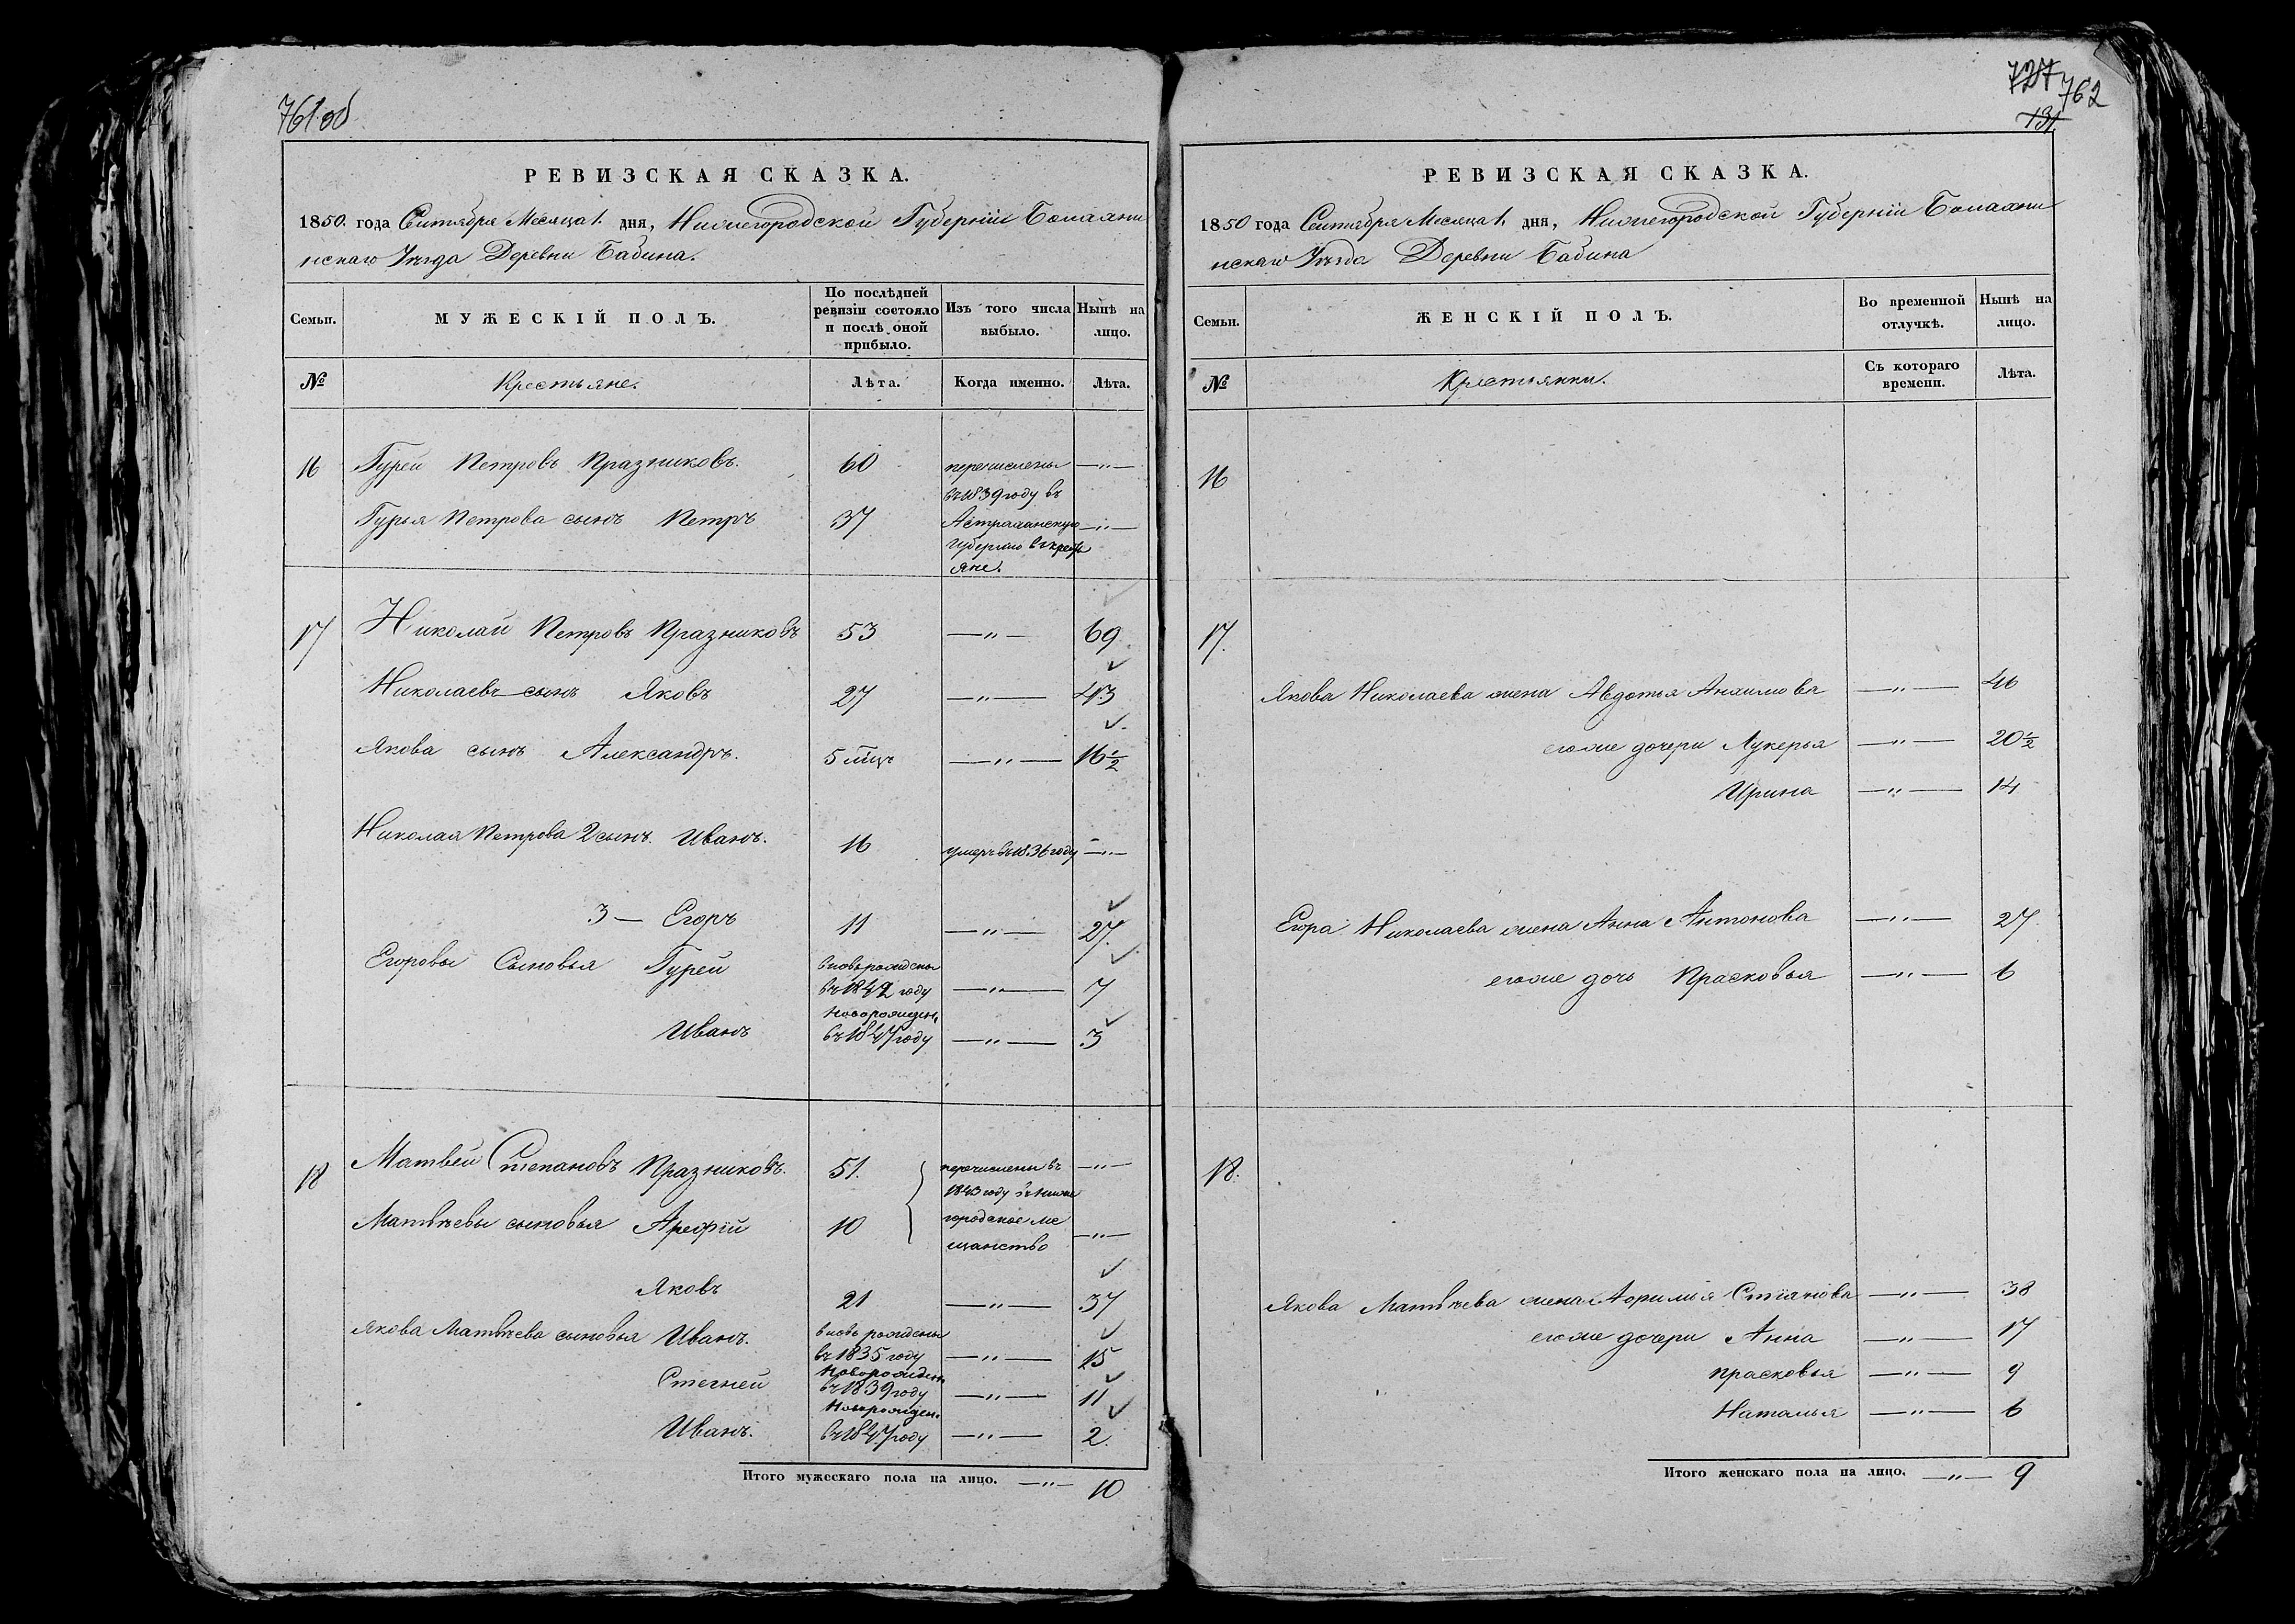 761 об
РЕВИЗСКАЯ СКАЗКА.
1850. года Сентября Месяца 1. дня, Нижегородской Губерніи Балахни
нскаго Уѣзда Деревни Бабина.
Семьи.
МУЖЕСКІЙ ПОЛЪ.
По послѣдней ревизіи состояло и послѣ оной прибыло.
Изъ того числа выбыло.
Нынѣ на лицо.
№
Крестьяне.
Лѣта.
Когда именно.
Лѣта.
16 Гурей Петровъ Празниковъ. 60 перечислены —"—
въ 1839 году въ
Гурья Петрова сынъ Петръ 37 Астраханскую —"—
Губернию въ крестья
яне.
17 Николай Петровъ Празниковъ 53 —"— 69.
Николаевъ сынъ Яковъ 27 —"— 43
Якова сынъ Александръ. 5 мѣцъ —"— 16 1/2
Николая Петрова 2 сынъ. Иванъ. 16 умеръ въ 1836 году —"—
3 — Егоръ 11 —"— 27.
Егоровы Сыновья Гурей вновьрожденъ
въ 1842 году —"— 7
новорожден.
Иванъ въ 1847 году —"— 3
18 Матвей Степановъ Празниковъ. 51. перечислены въ —"—
1843 году въ Ниже
Матвѣевы сыновья Арефій 10 городское ме
щанство —"—
Яковъ 21 —"— 37
Якова Матвѣева сыновья Иванъ. вновь рожденъ
въ 1835 году —"— 15
новорожден
Стегней въ 1839 году —"— 11
новорожден.
Иванъ. въ 1847 году —"— 2.
Итого мужескаго пола на лицо. —"— 10
727
762
131.
РЕВИЗСКАЯ СКАЗКА.
1850 года Сентября Месяца 1. дня, Нижегородской Губерніи Балахни
нскаго Уѣзда Деревни Бабина
Семьи.
ЖЕНСКІЙ ПОЛЪ.
Во временной отлучкѣ.
Нынѣ на лицо.
№
Крестьянки.
Съ котораго времени.
Лѣта.
16
17.
Якова Николаева жена Авдотья Анхимова —"— 46
егоже дочери Лукерья —"— 20 1/2
Ирина —"— 14
Егора Николаева жена Анна Антонова —"— 27
егоже дочь Прасковья —"— 6
18.
Якова Матвѣева жена —"— 38
егоже дочери Анна —"— 17
прасковья —"— 9
Наталья —"— 6
Итого женскаго пола на лицо. —"— 9